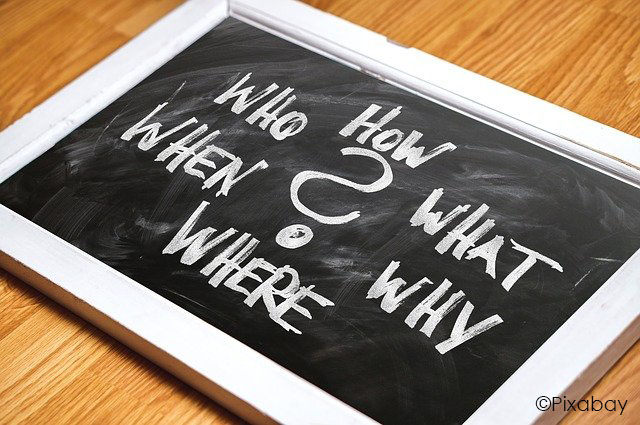 WHO
HOW
WHEN
?
WHAT
WHERE
WHY
©Pixabay